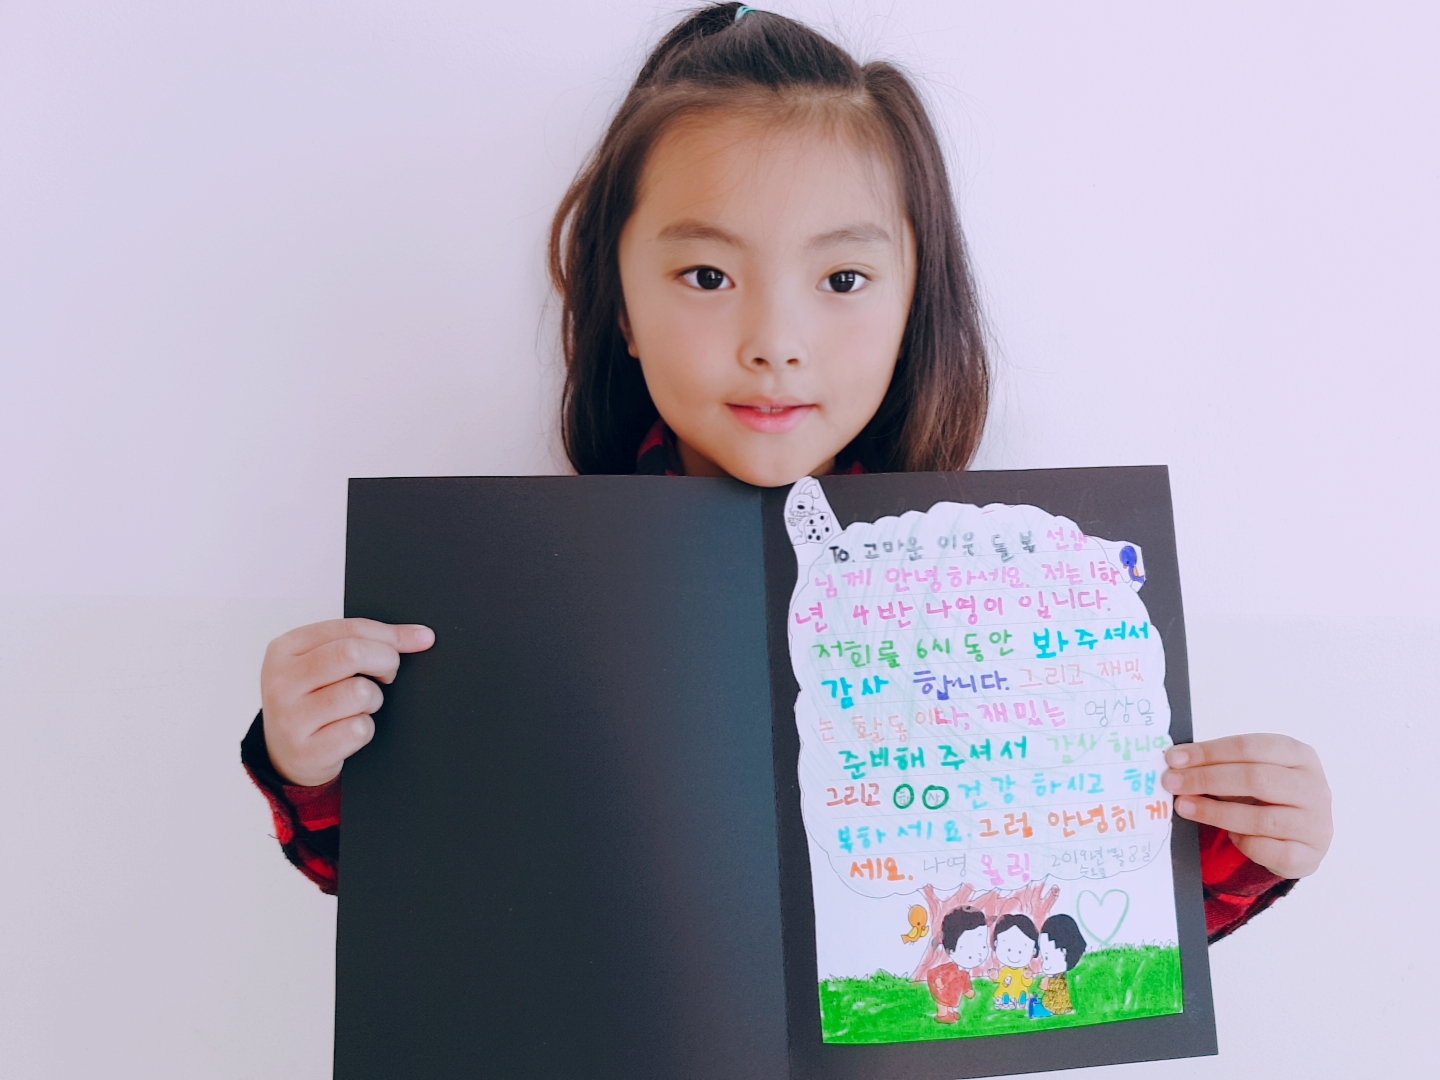 To. 고마운 이웃 돌봄 선생
님께 안녕하세요. 저는 1학
년 4반 나영이 입니다.
저희를 6시 동안 봐주셔서
감사 합니다. 그리고 재밌
는 활동이다, 재밌는 영상을
준비해 주셔서 감사 합니다
그리고 항상 건강 하시고 행
복하세요. 그럼 안녕히 계
세요. 나영 올림 2019년 8일
수요일